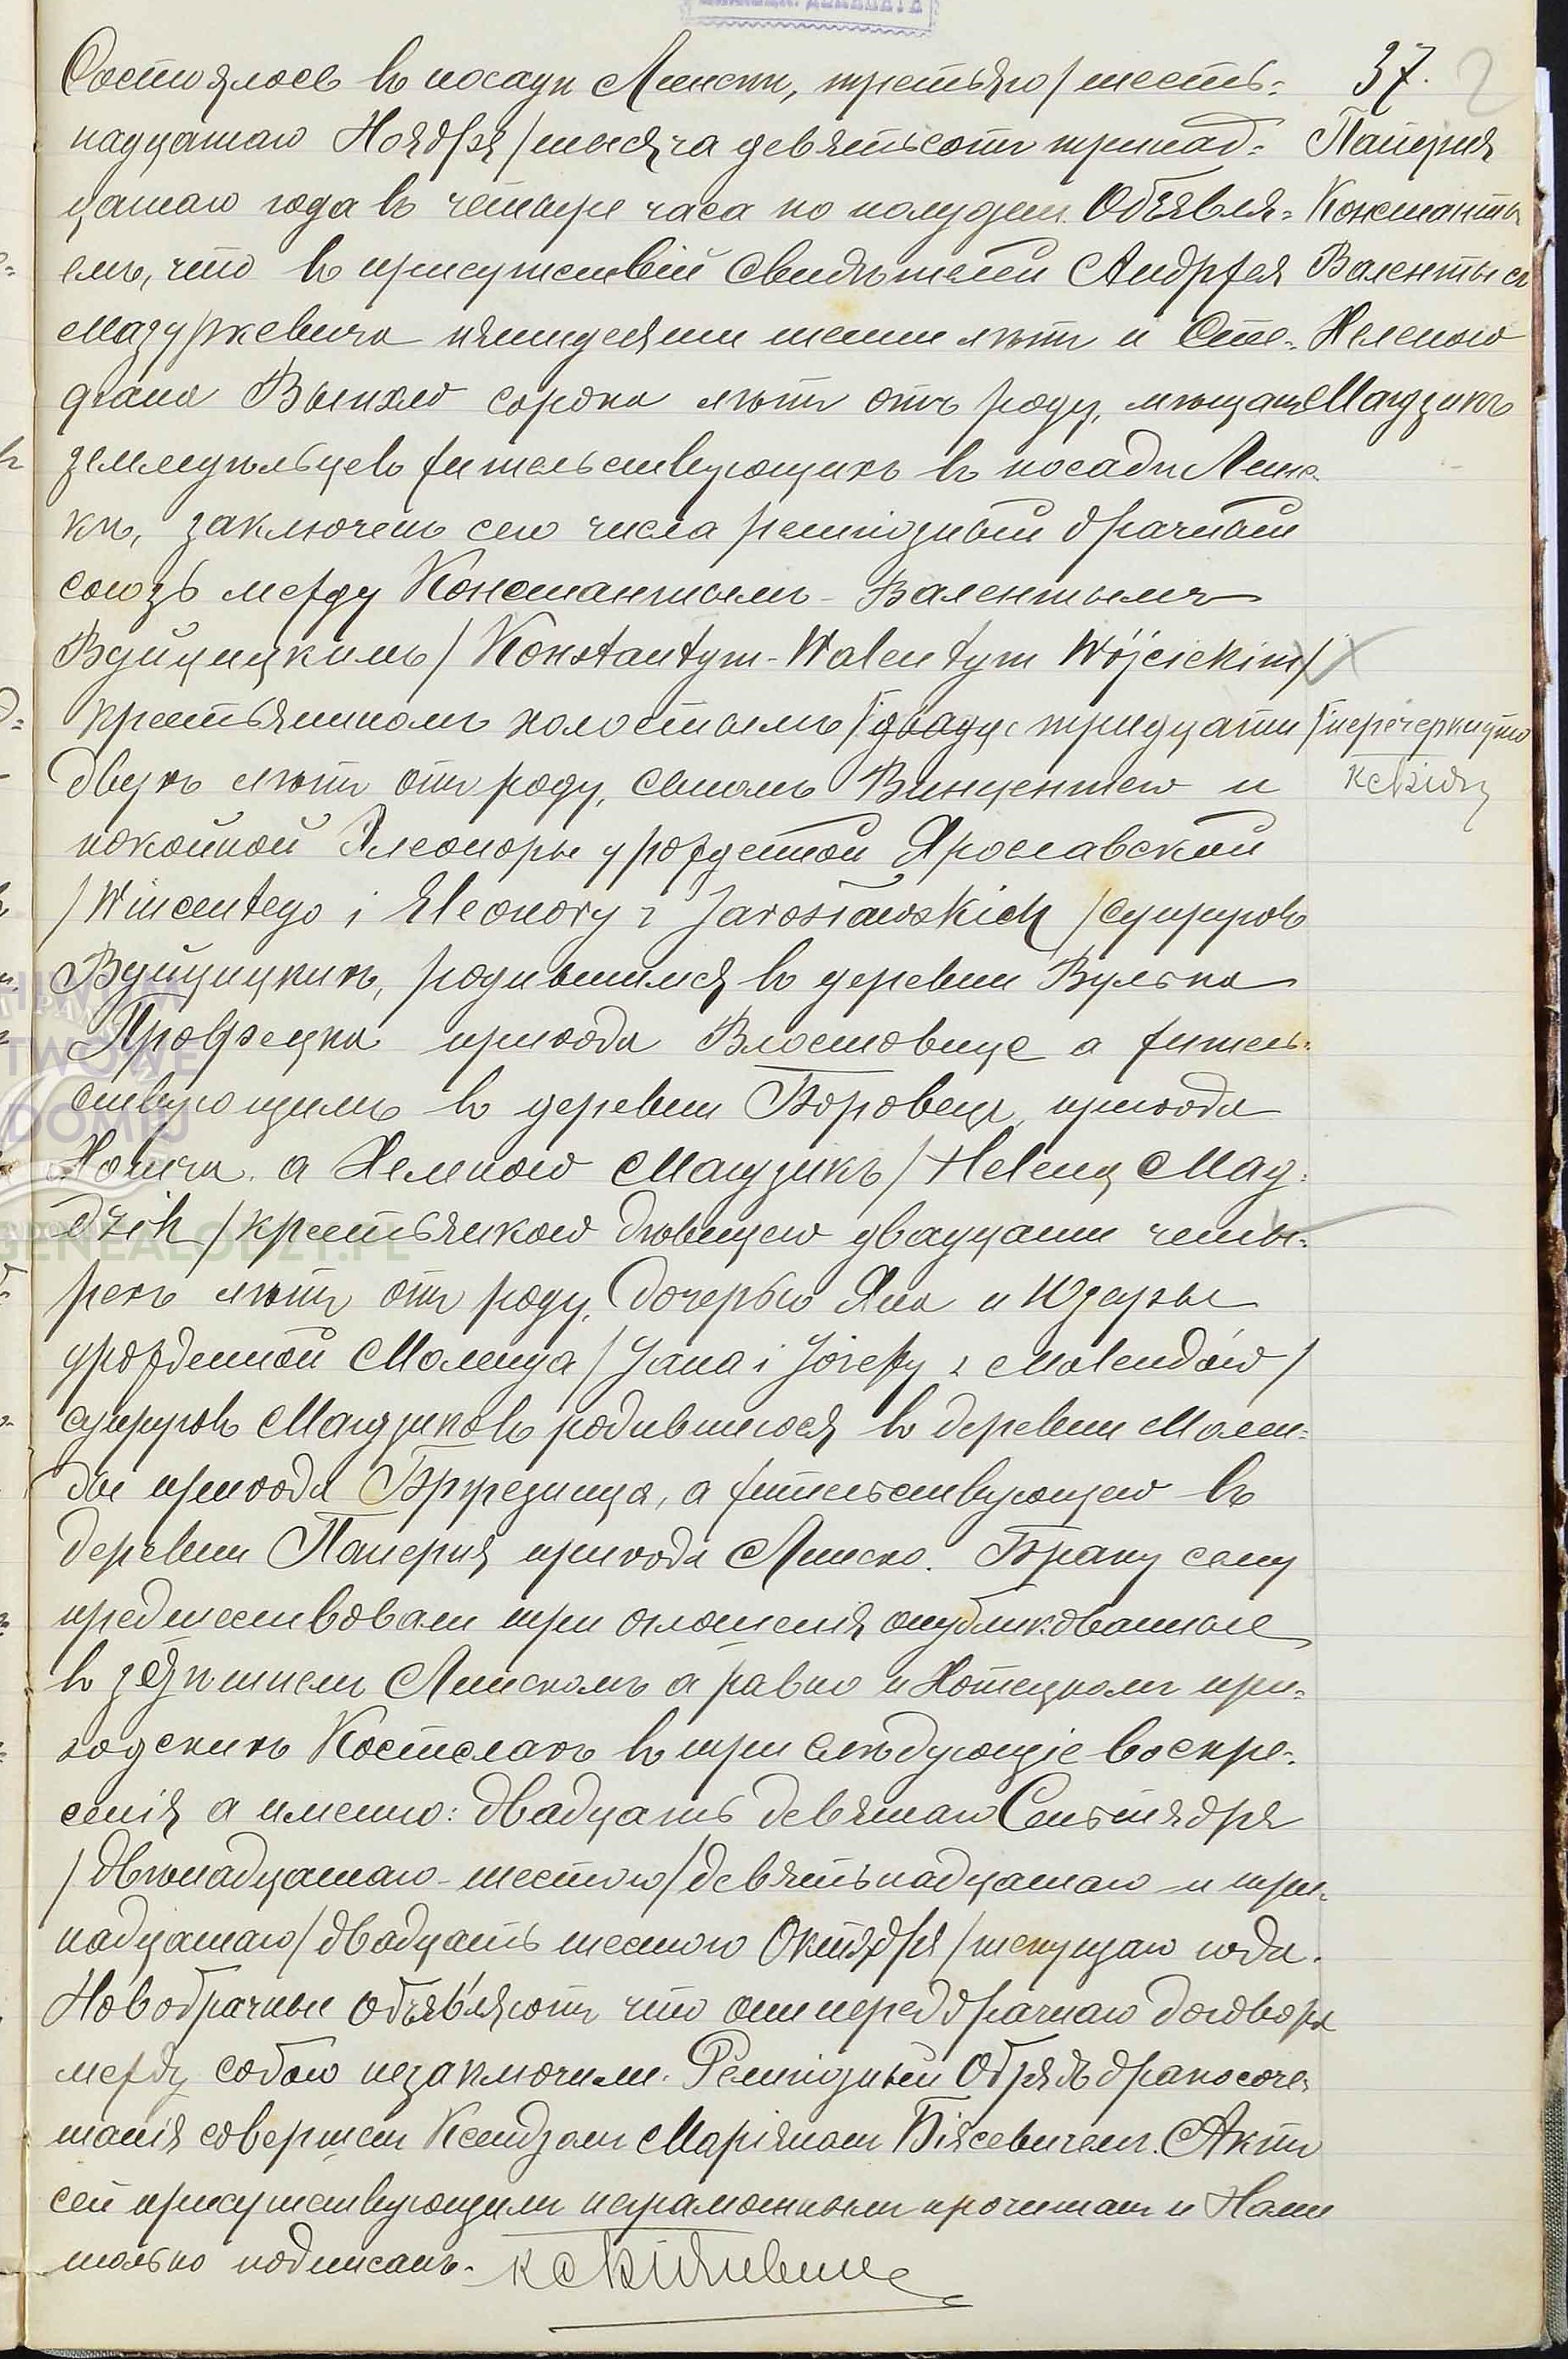 Состоялось въ посадѣ Липскѣ, третьяго/шест-
надцатаго Ноября/тысяча девятьсотъ тринад-
цатаго года въ четыре часа по полудни. Объявля-
емъ, что въ присутствіи свидѣтелей Андржея
Мазуркевича пятидесяти шести лѣтъ и Сте-
фана Выпхло сорока лѣтъ отъ роду, мѣщанъ
земледѣльцевъ жительствующихъ въ посадѣ Лип-
скѣ, заключенъ сего числа религіозный брачный
союзъ между Константымъ-Валентымъ
Вуйцицкимъ/Konstantym-Walentym Wójcickim/
крестьяниномъ холостымъ/двадц тридцати
двухъ лѣтъ отъ роду, сыномъ Винцентего и
покойной Элеоноры урожденной Ярославской
/Wincentego i Eleonory z Jarosławskich/супруговъ
Вуйцицкихъ, родившимся въ деревни Вулька
прихода Властовице а житель-
ствующимъ въ деревни Боровецъ, прихода
Хотча, а Хеленою Магдзикъ/Heleną Mag-
dzik/крестьянкою дѣвицею двадцати четы-
рехъ лѣтъ отъ роду, дочерью Яна и Юзефы
урожденной Моленда/Jana i Józefy z Molendów/
супруговъ Магдзиковъ родившеюся въ деревни Молен-
ды прихода а жительствующею въ
деревни Паперня прихода Липско. Браку сему
предшествовали три оглашенія опубликованные
въ здѣшнемъ Липскомъ а равно и Хотецкомъ при-
ходскихъ Костелахъ въ три слѣдующіе воскре-
сенія а именно: двадцать девятаго Сентября
/двѣнадцатаго шестого/девятьнадцатаго и три-
надцатаго/двадцать шестого Октября/текущаго года.
Новобрачные объявляютъ что они передбрачнаго договора
между собою незаключили. Религіозный обрядъ бракосоче-
танія совершенъ Ксендзомъ Маріяномъ. Актъ
сей присутствующимъ неграмотнымъ прочитанъ и Нами
только подписанъ.
37.
Паперня
Константы
Валенты съ
Хеленою
Магдзикъ
/перечеркнуто